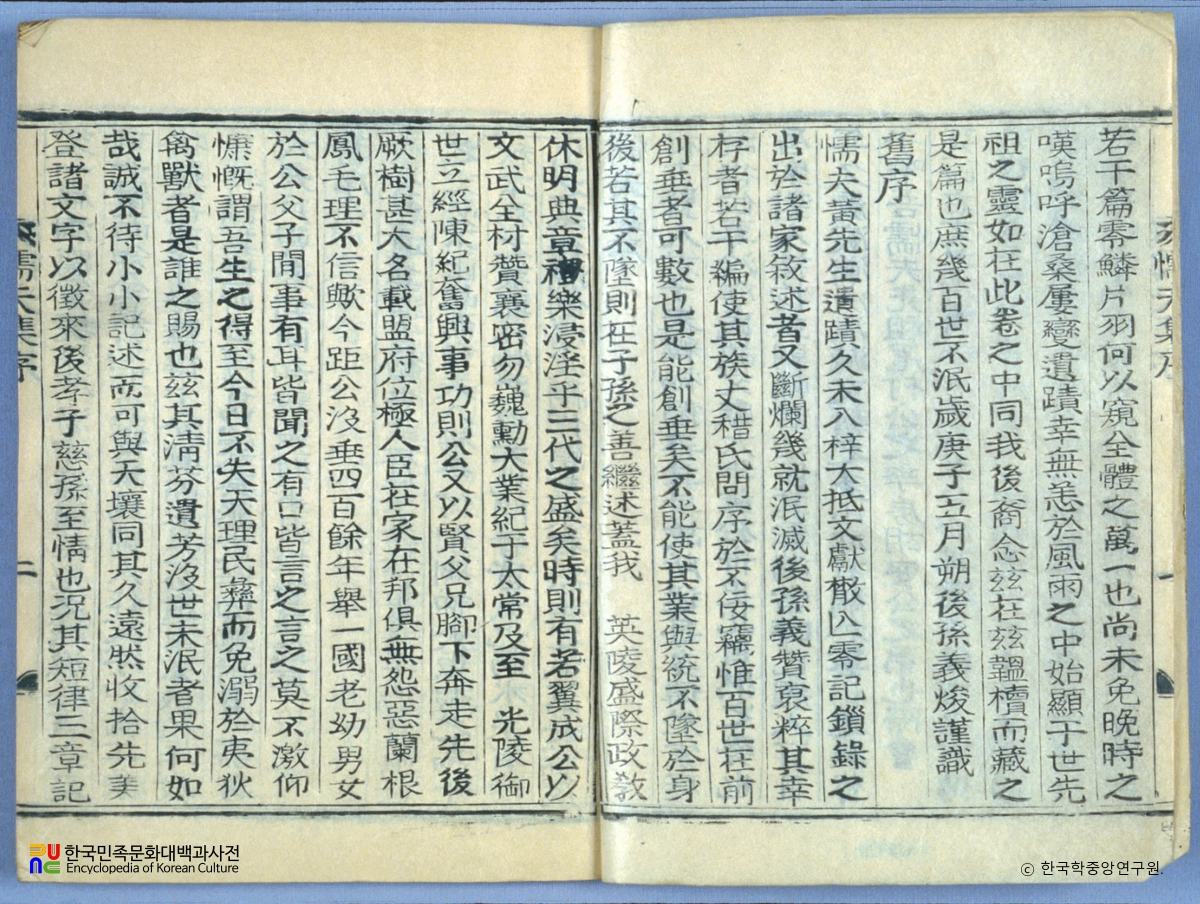 若干篇零鱗片羽何以窺全體之萬一也尚未免晩時之
嘆嗚呼滄桑屢變遺蹟幸無恙於風雨之中始顯于世先
祖之靈如在此卷之中同我後裔念玆在玆韞櫝而藏之
是篇也庶幾百世不泯歲庚子五月朔後孫義焌謹識
舊序
懦夫黃先生遺蹟久未入梓大抵文獻散亡零記鎖錄之
出於諸家敘述者又斷爛幾就泯滅後孫義贊裒粹其幸
存者若干編使其族丈稭氏問序於不佞竊惟百世在前
創垂者可數也是能創垂矣不能使其業與統不墜於身
後若其不墜則在子孫之善繼述蓋我 英陵盛際政敎
休明典章禮樂浸淫乎三代之盛矣時則有若翼成公以
文武全材贊襄密勿巍勳大業紀于太常及至 光陵御
世立經陳紀奮興事功則公又以賢父兄脚下奔走先後
厥樹甚大名載盟府位極人臣在家在邦俱無怨惡蘭根
鳳毛理不信歟今距公沒垂四百餘年舉一國老幼男女
於公父子間事有耳皆聞之有口皆言之言之莫不激仰
慷慨謂吾生之得至今日不失天理民彝而免溺於夷狄
禽獸者是誰之賜也玆其淸芬遺芳沒世未泯者果何如
哉誠不待小小記述而可與天壤同其久遠然收拾先美
登諸文字以徵來後孝子慈孫至情也況其短律三章記
懦夫集序
二
한국민족문화대백과사전
Encyclopedia of Korean Culture
ⓒ 한국학중앙연구원.